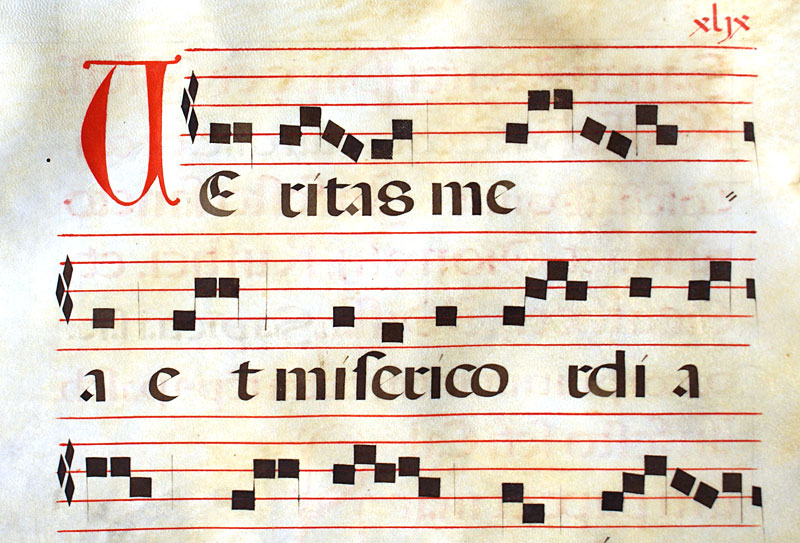 xlix
VE ritas me =
a e t miserico rdi a